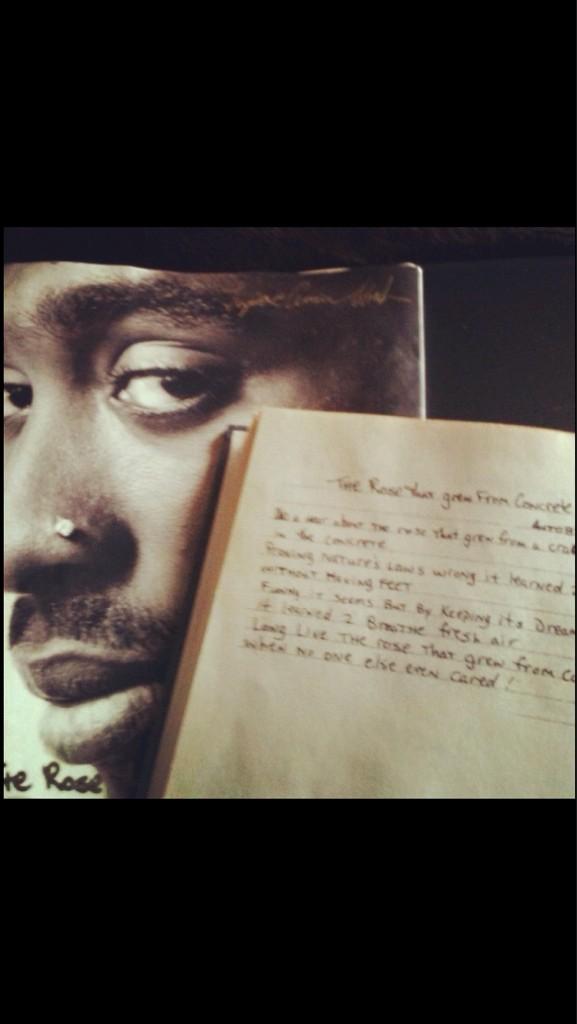 The Rose That grew From Concrete
AUTOB
u a hear about the rose that grew from a cra
in the concrete
Proving Nature's Laws wrong it learned 2
without Having Feet
Funny it seems But By Keeping its Dream
it learned 2 Breathe fresh air
Long Live The rose That grew from co
when no one else even cared!
The Rose